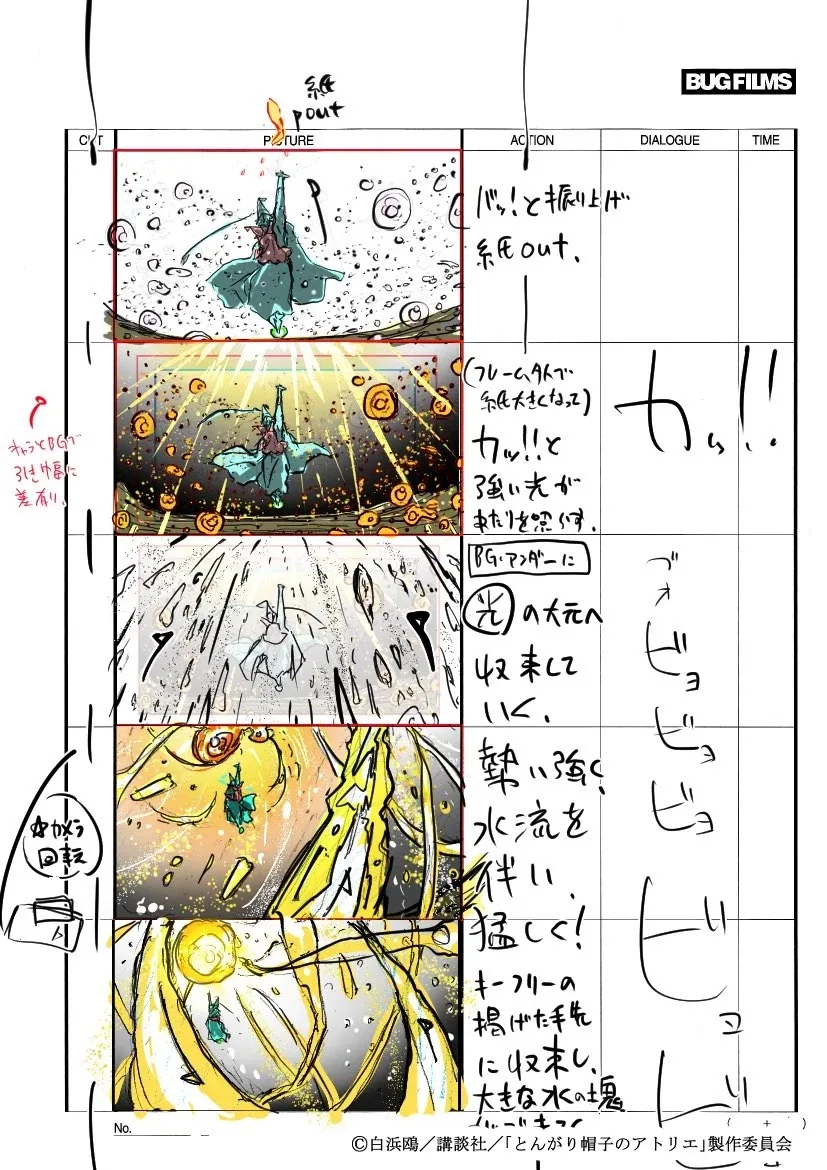 BUG FILMS
紙
pout
CUT PICTURE ACTION DIALOGUE TIME
バッ!と振り上げ
紙out、
(フレーム外で
紙大きくなって)
カッ!!と
強い光が
あたりを照らす。
カッ!!
キャラとBGで
引き幅に
差有り、
BG・アンダーに
光の大元へ
収束して
いく、
ブォ
ビョ
ビョ
ビョ
勢い強く、
水流を
伴い、
猛しく!
☆カメラ
回転
キーフリーの
掲げた手先
に収束し、
大きな水の塊
ビョ
ビ
No.
( + )
©白浜鴎/講談社/「とんがり帽子のアトリエ」製作委員会